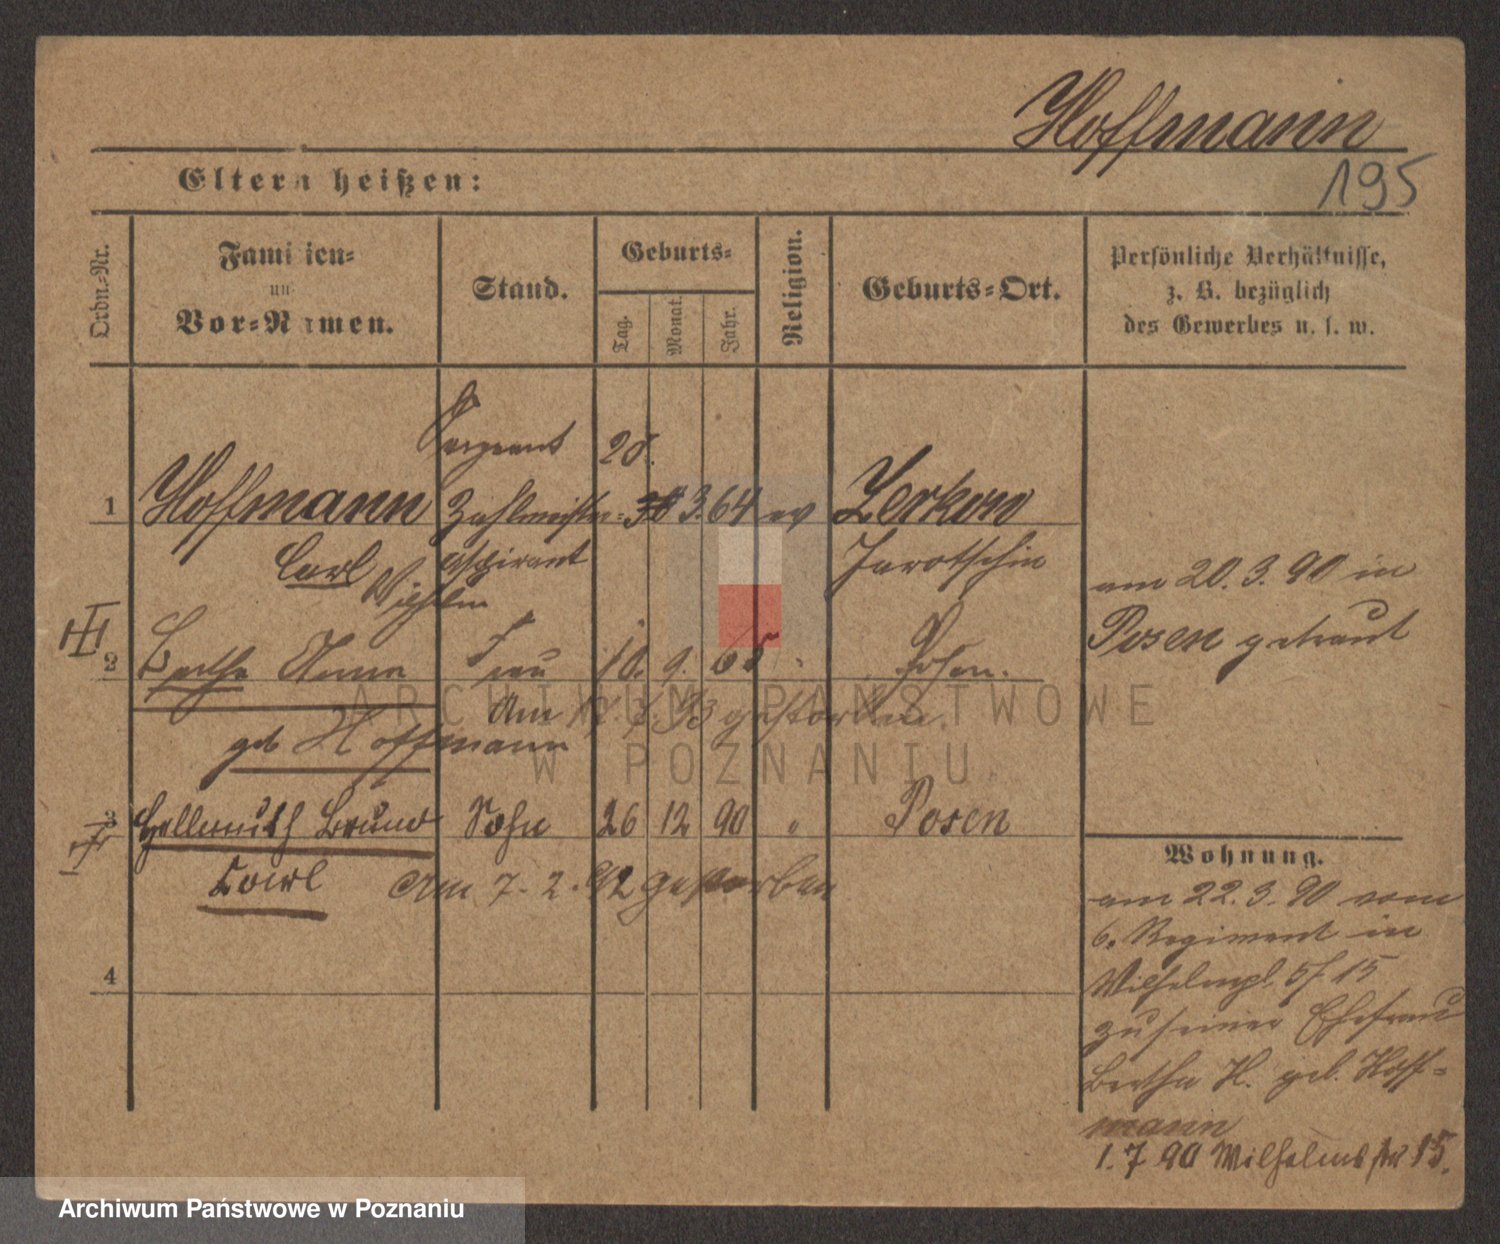 Hoffmann
195
Eltern heißen:
Ordn.-Nr.
Familien-
und
Vor-Namen.
Stand.
Geburts-
Tag.
Monat.
Jahr.
Religion.
Geburts-Ort.
Persönliche Verhältnisse,
z. B. bezüglich
des Gewerbes u. s. w.
Sergeant 28.
1 Hoffmann Zahlmeister- 3. 64 ev Zerkow
Carl Wilhelm aspirant Jarotschin
am 20. 3. 90 in
Posen getraut
2 Bertha Anna Frau 18. 9. 65 Posen.
Am 3. 93 gestorben.
geb Hoffmann
3 Hellmuth Bruno Sohn 26 12 90 " Posen
Carl Am 7. 2. 92 gestorben
4
Wohnung.
am 22. 3. 90 vom
6. Regiment in
Wilhelmpl. 15
zu seiner Ehefrau
Bertha H. geb. Hoff-
mann
1. 7 90 Wilhelmstr 15.
ARCHIWUM PAŃSTWOWE
W POZNANIU
Archiwum Państwowe w Poznaniu